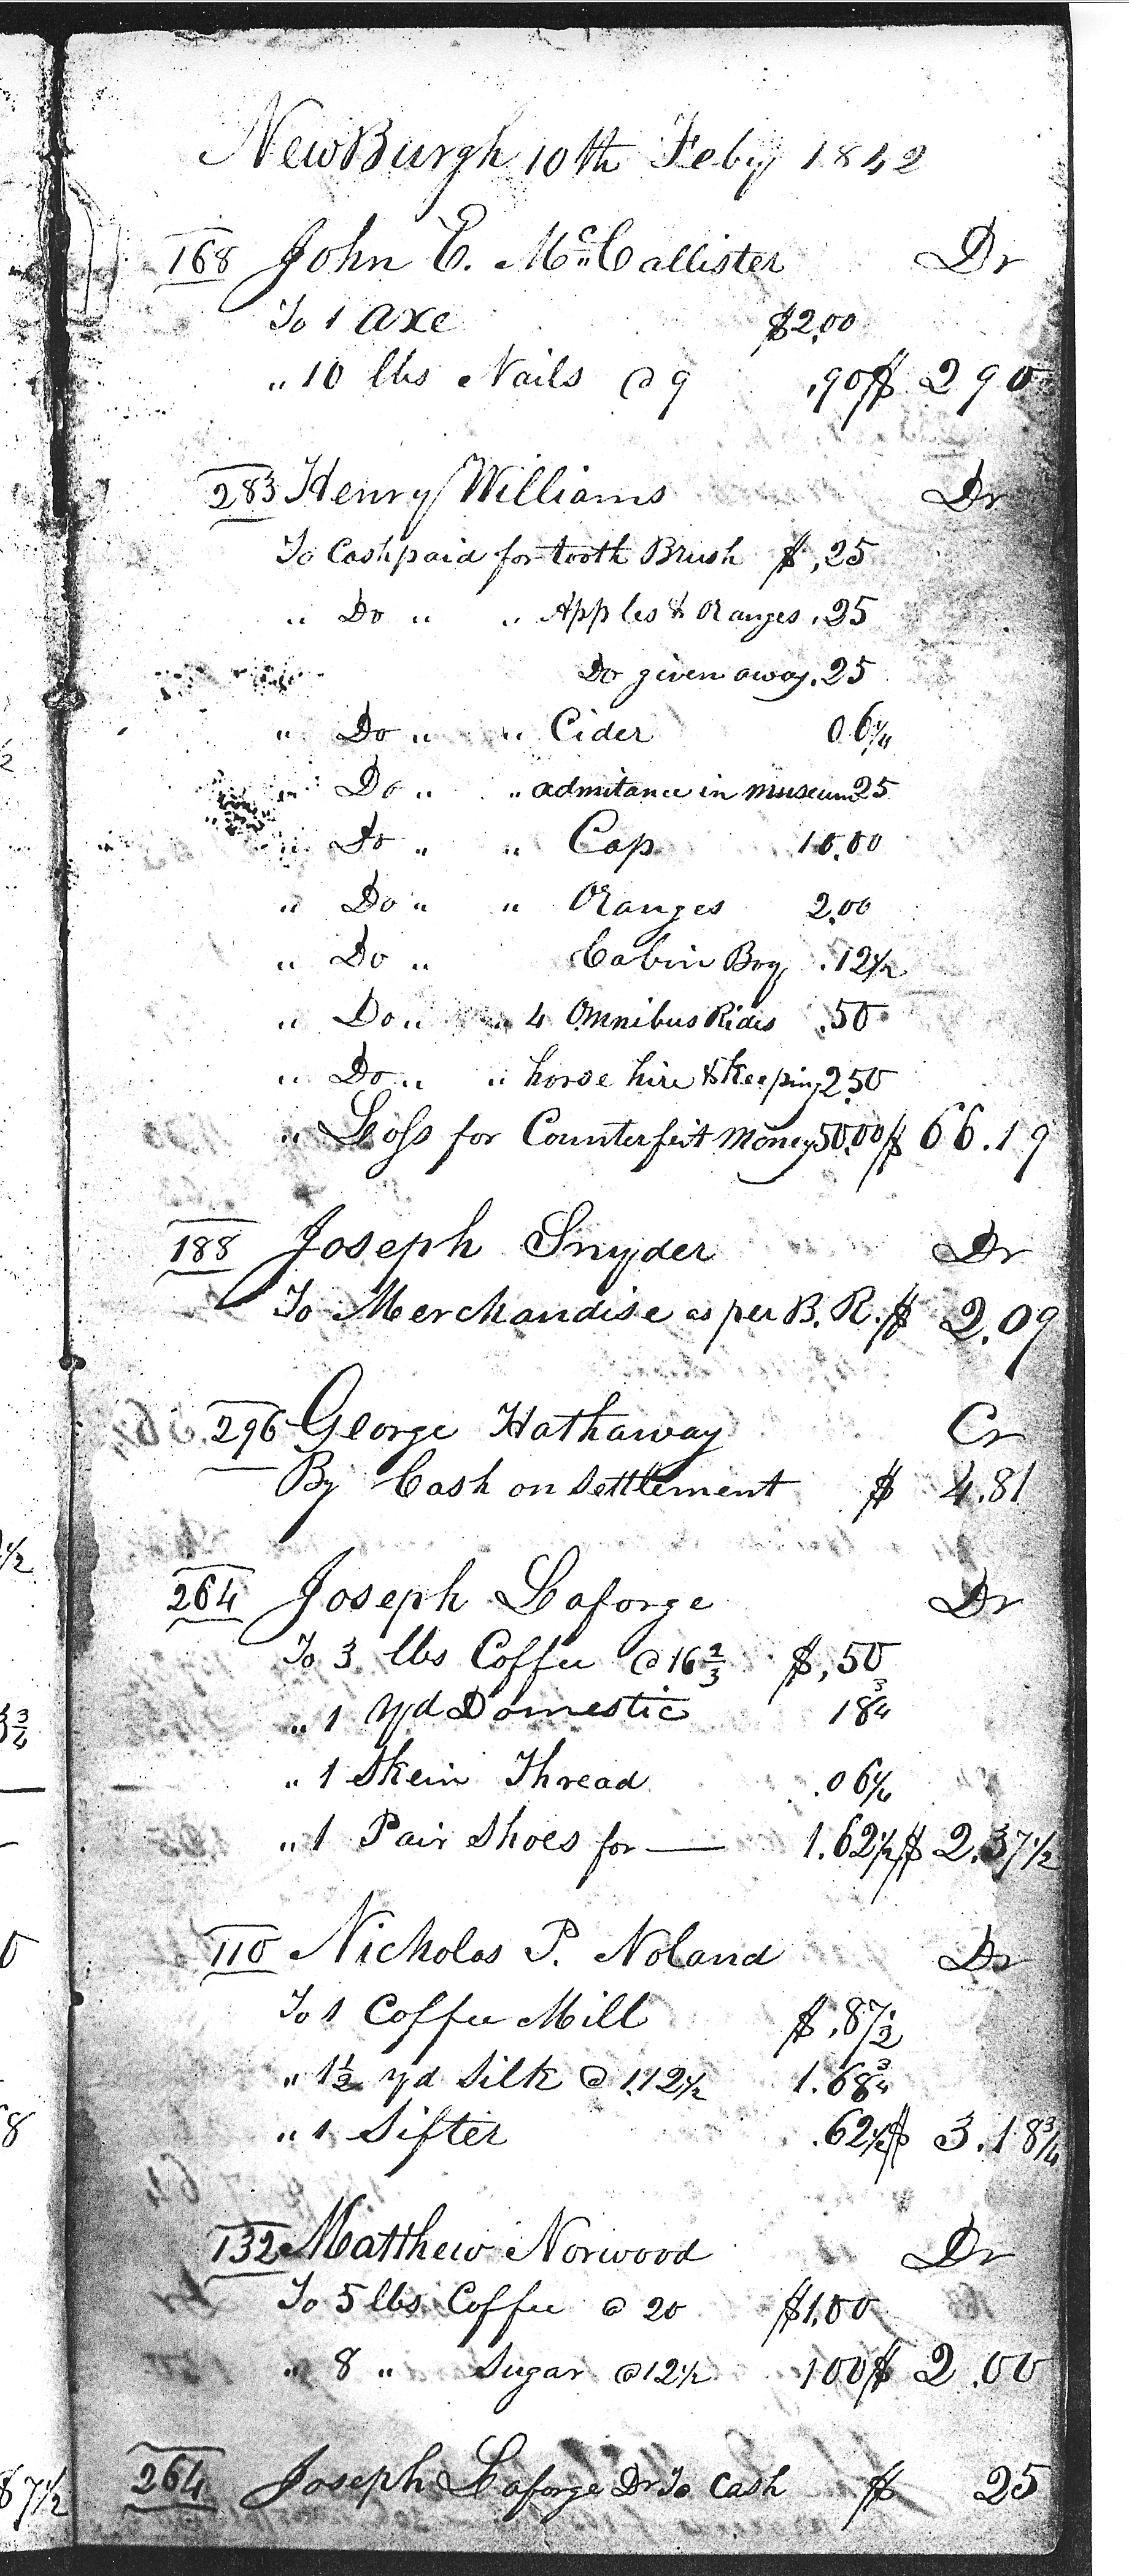 NewBurgh 10th Feby 1842
168 John E. McCallister Dr
To 1 axe $2.00
" 10 lbs Nails @ 9 .90 $ 2 90
283 Henry Williams Dr
To Cash paid for tooth Brush $ .25
" Do " " Apples & Oranges .25
Do given away .25
" Do " " Cider 06 1/4
" Do " " admitance in museum 25
" Do " " Cap 10.00
" Do " " Oranges 2.00
" Do " Cabin Boy .12 1/2
" Do " " 4 Omnibus Rides .50
" Do " " horse hire & Keeping 2.50
" Loss for Counterfeit Money 50.00 $ 66.19
188 Joseph Snyder Dr
To Merchandise as per B. R. $ 2.09
296 George Hathaway Cr
By Cash on Settlement $ 4.81
1/2
264 Joseph Laforge Dr
To 3 lbs Coffee @ 16 2/3 $ .50
" 1 Yd Domestic 18 3/4
3/4
" 1 Skein Thread .06 1/4
" 1 Pair Shoes for — 1.62 1/2 $ 2.37 1/2
110 Nicholas P. Noland Dr
To 1 Coffee Mill $ .87 1/2
" 1 1/2 yd Silk @ 1.12 1/2 1.68 3/4
" 1 Sifter .62 1/2 $ 3.18 3/4
8
132 Matthew Norwood Dr
To 5 lbs Coffee @ 20 $1.00
" 8 " Sugar @ 12 1/2 1 00 $ 2.00
264 Joseph Laforge Dr To Cash $ 25
7 1/2